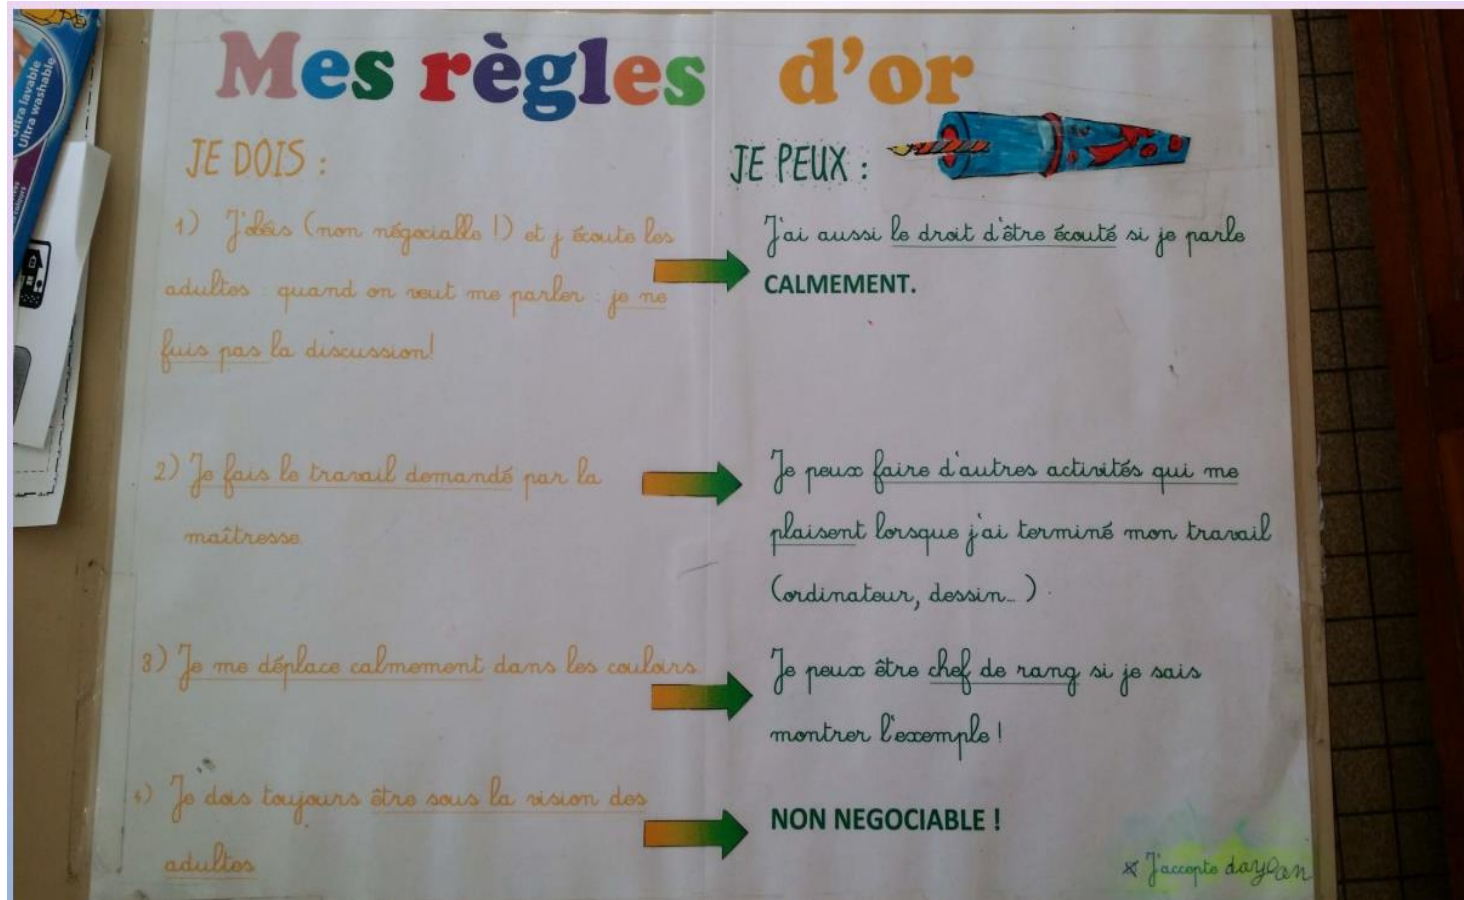 Ultra lavable
Ultra washable
Mes règles d'or
JE DOIS :
1) J'obéis (non négociable !) et j écoute les
adultes : quand on veut me parler : je ne
fuis pas la discussion!
2) Je fais le travail demandé par la
maîtresse.
3) Je me déplace calmement dans les couloirs
4) Je dois toujours être sous la vision des
adultes
JE PEUX :
J'ai aussi le droit d'être écouté si je parle
CALMEMENT.
Je peux faire d'autres activités qui me
plaisent lorsque j'ai terminé mon travail
(ordinateur, dessin...)
Je peux être chef de rang si je sais
montrer l'exemple !
NON NEGOCIABLE !
J'accepte daylan